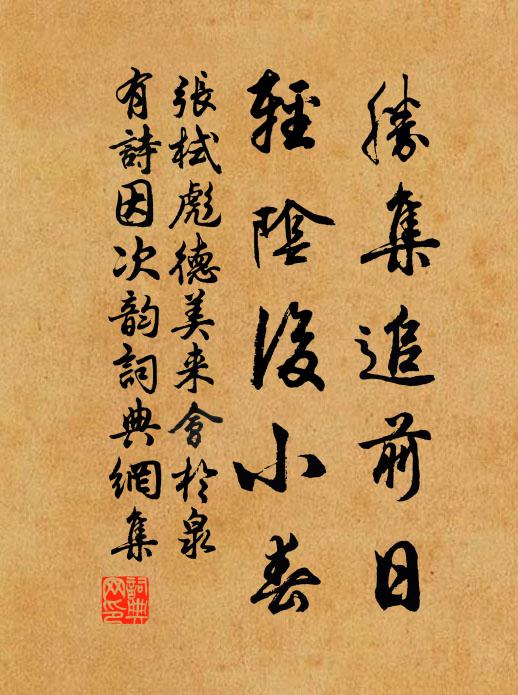 勝集追前日
輕陰後小春
張栻彪德美来會於泉
有詩因次韵詞典網集
詞典网印